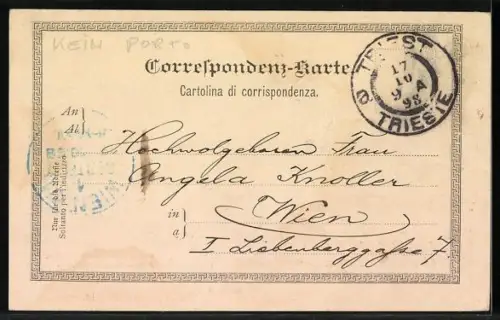 KEIN PORTO
Correspondenz-Karte
Cartolina di corrispondenza.
TRIEST
17
10
9 A
98
TRIESTE
An
Al
Nur für die Adresse
Soltanto per l'indirizzo
Hochwolgeboren Frau
Angela Knoller
in
a
Wien
I Liebenberggasse 7